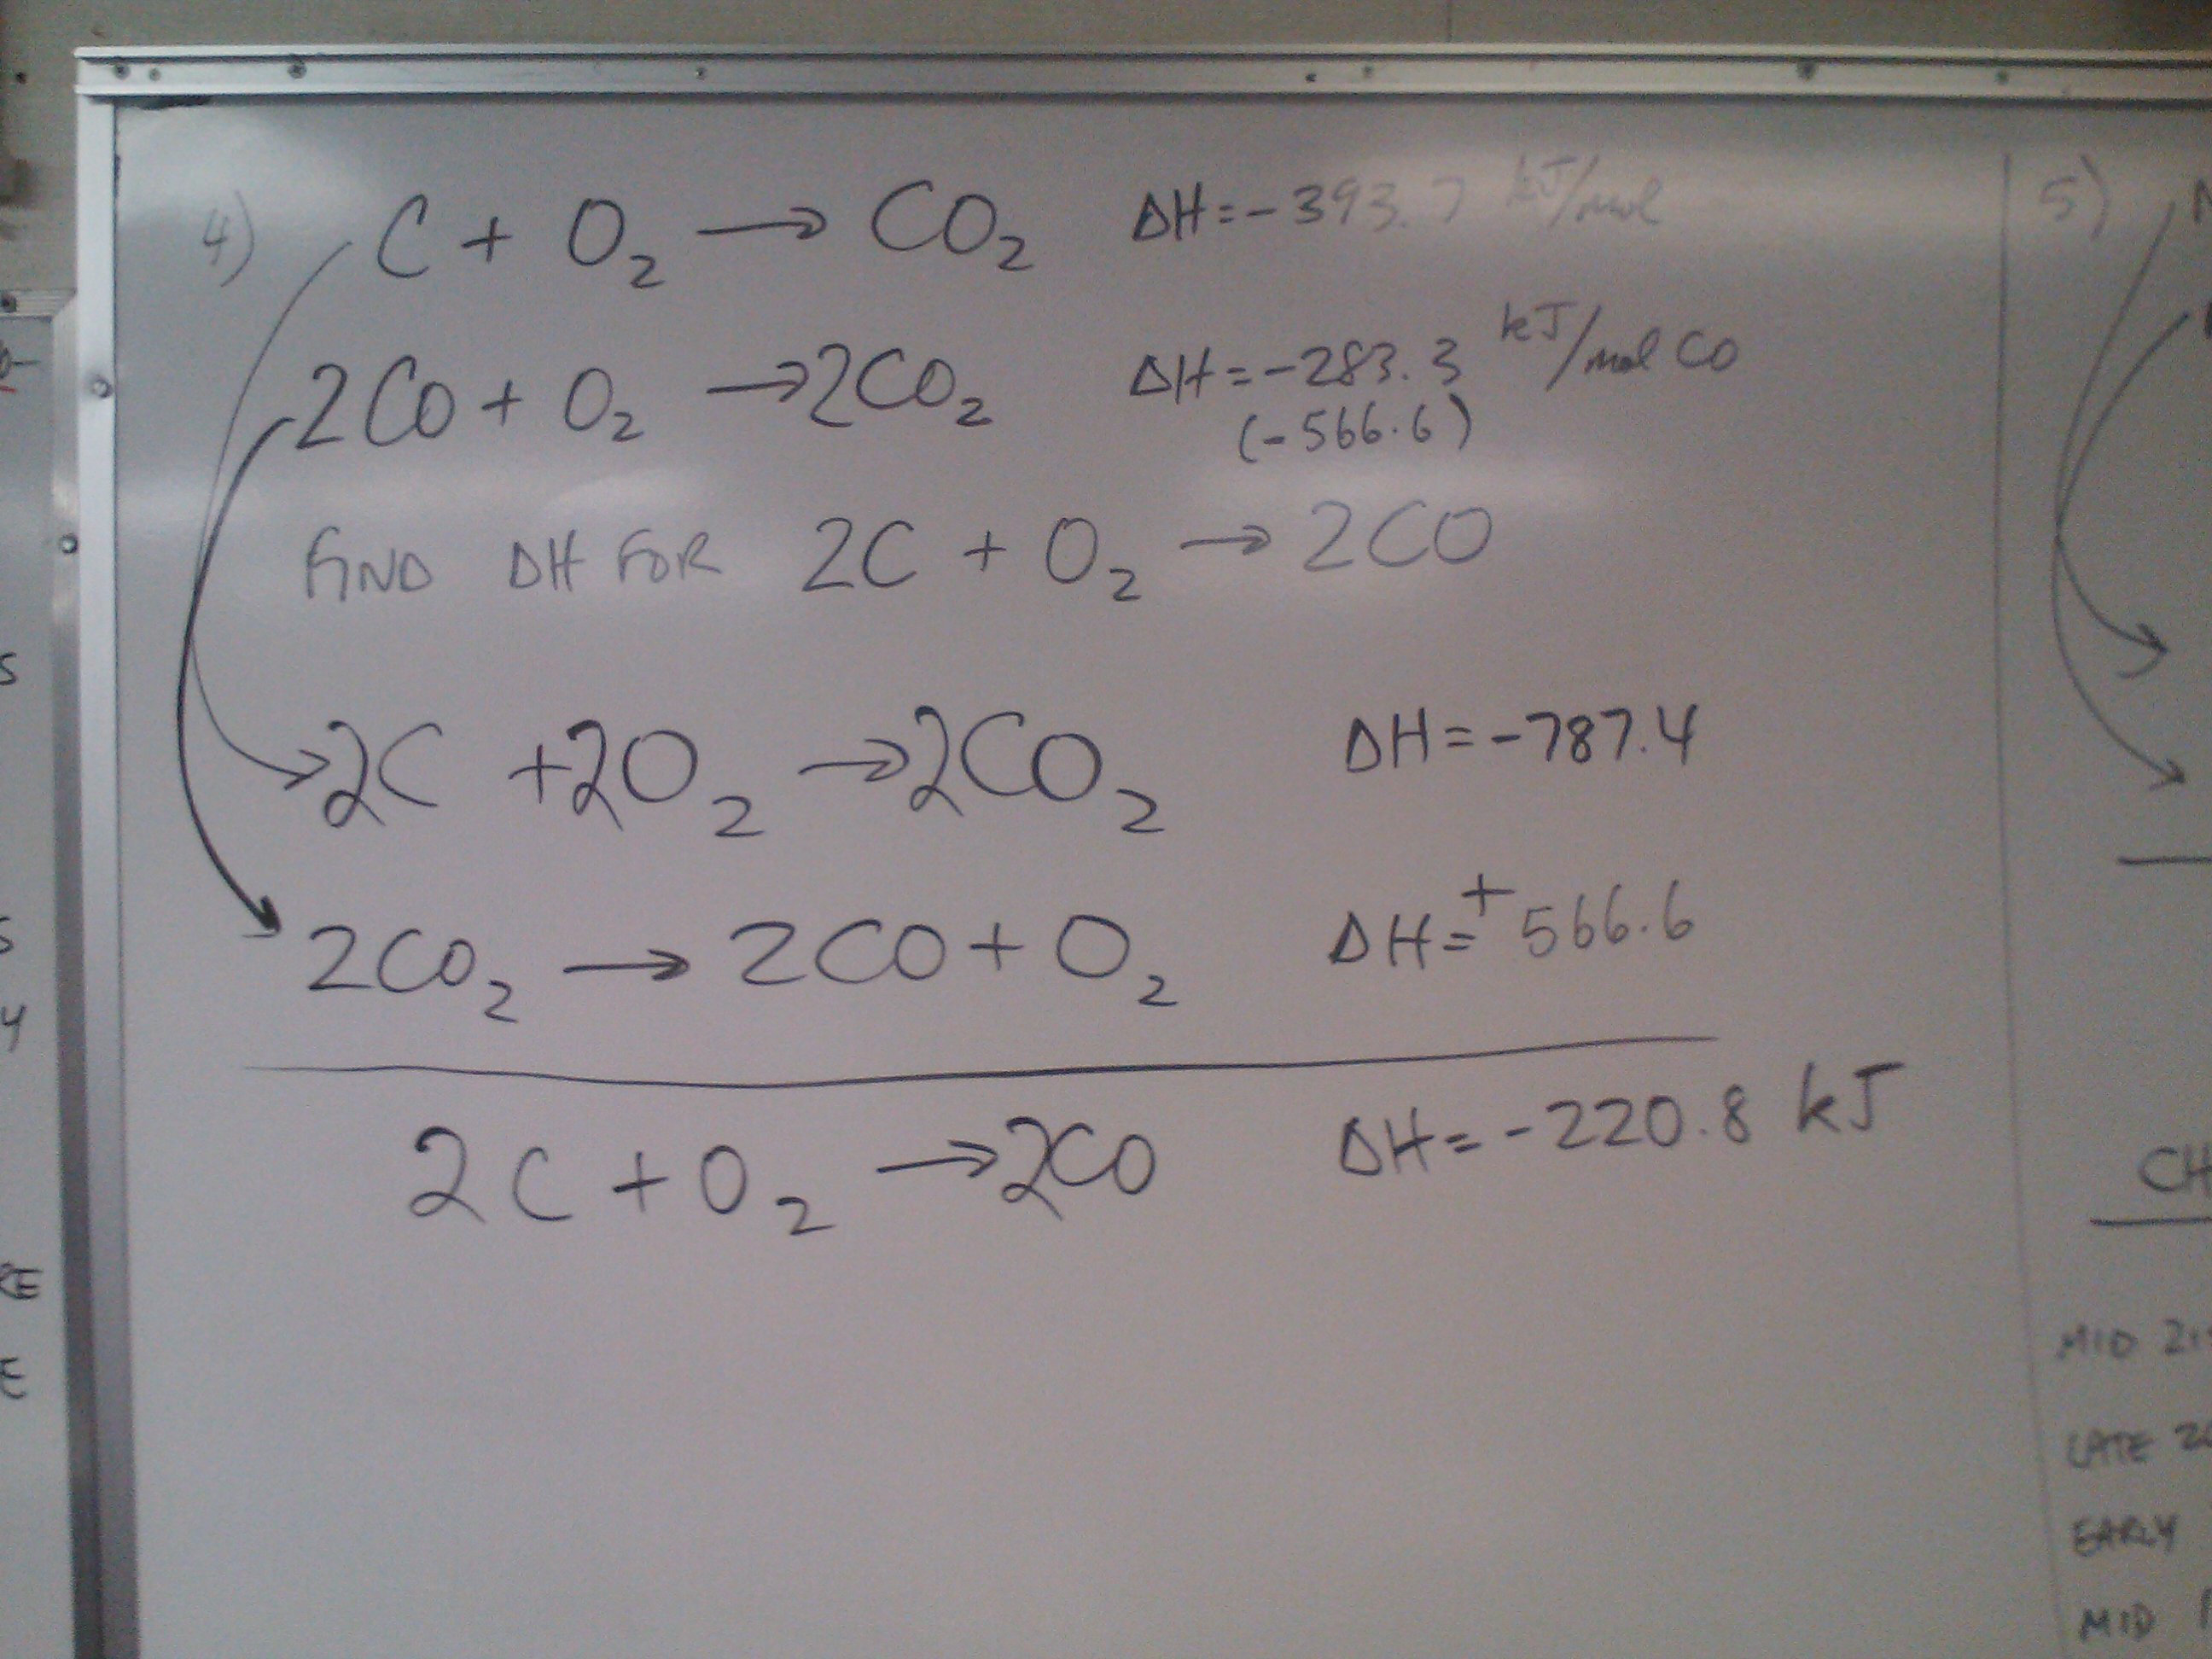 4) C + O₂ → CO₂ ΔH = -393.7 kJ/mol
2CO + O₂ → 2CO₂ ΔH = -283.3 kJ/mol CO
(-566.6)
FIND ΔH FOR 2C + O₂ → 2CO
2C + 2O₂ → 2CO₂ ΔH = -787.4
2CO₂ → 2CO + O₂ ΔH = +566.6
2C + O₂ → 2CO ΔH = -220.8 kJ
5)
CH
MID 21
LATE 20
EARLY
MID
S
S
4
RE
E